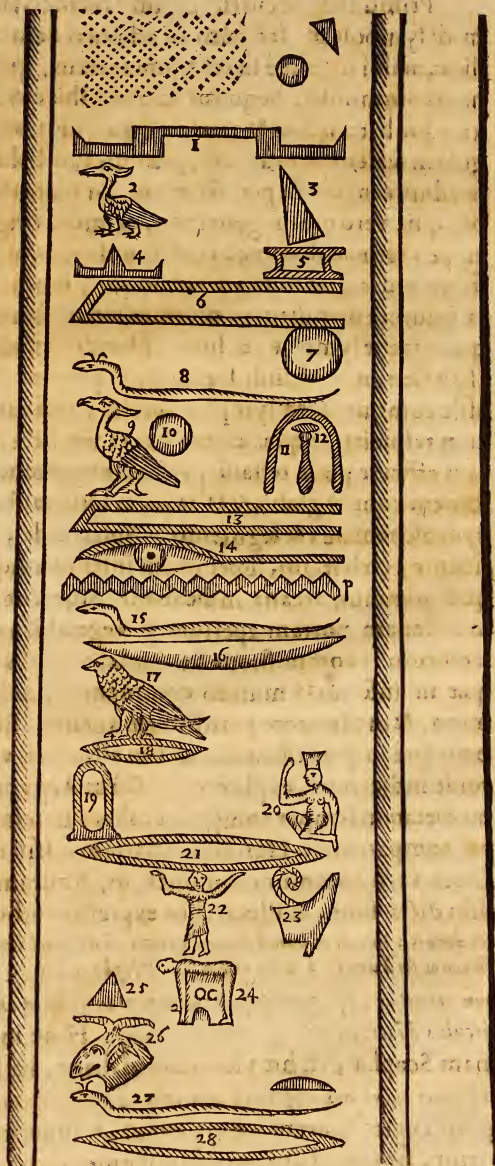 1
2 3
4 5
6
7
8
10 11 12
13
14
p
15
16
17
18
19 20
21
22 23
24
25
26
27
28